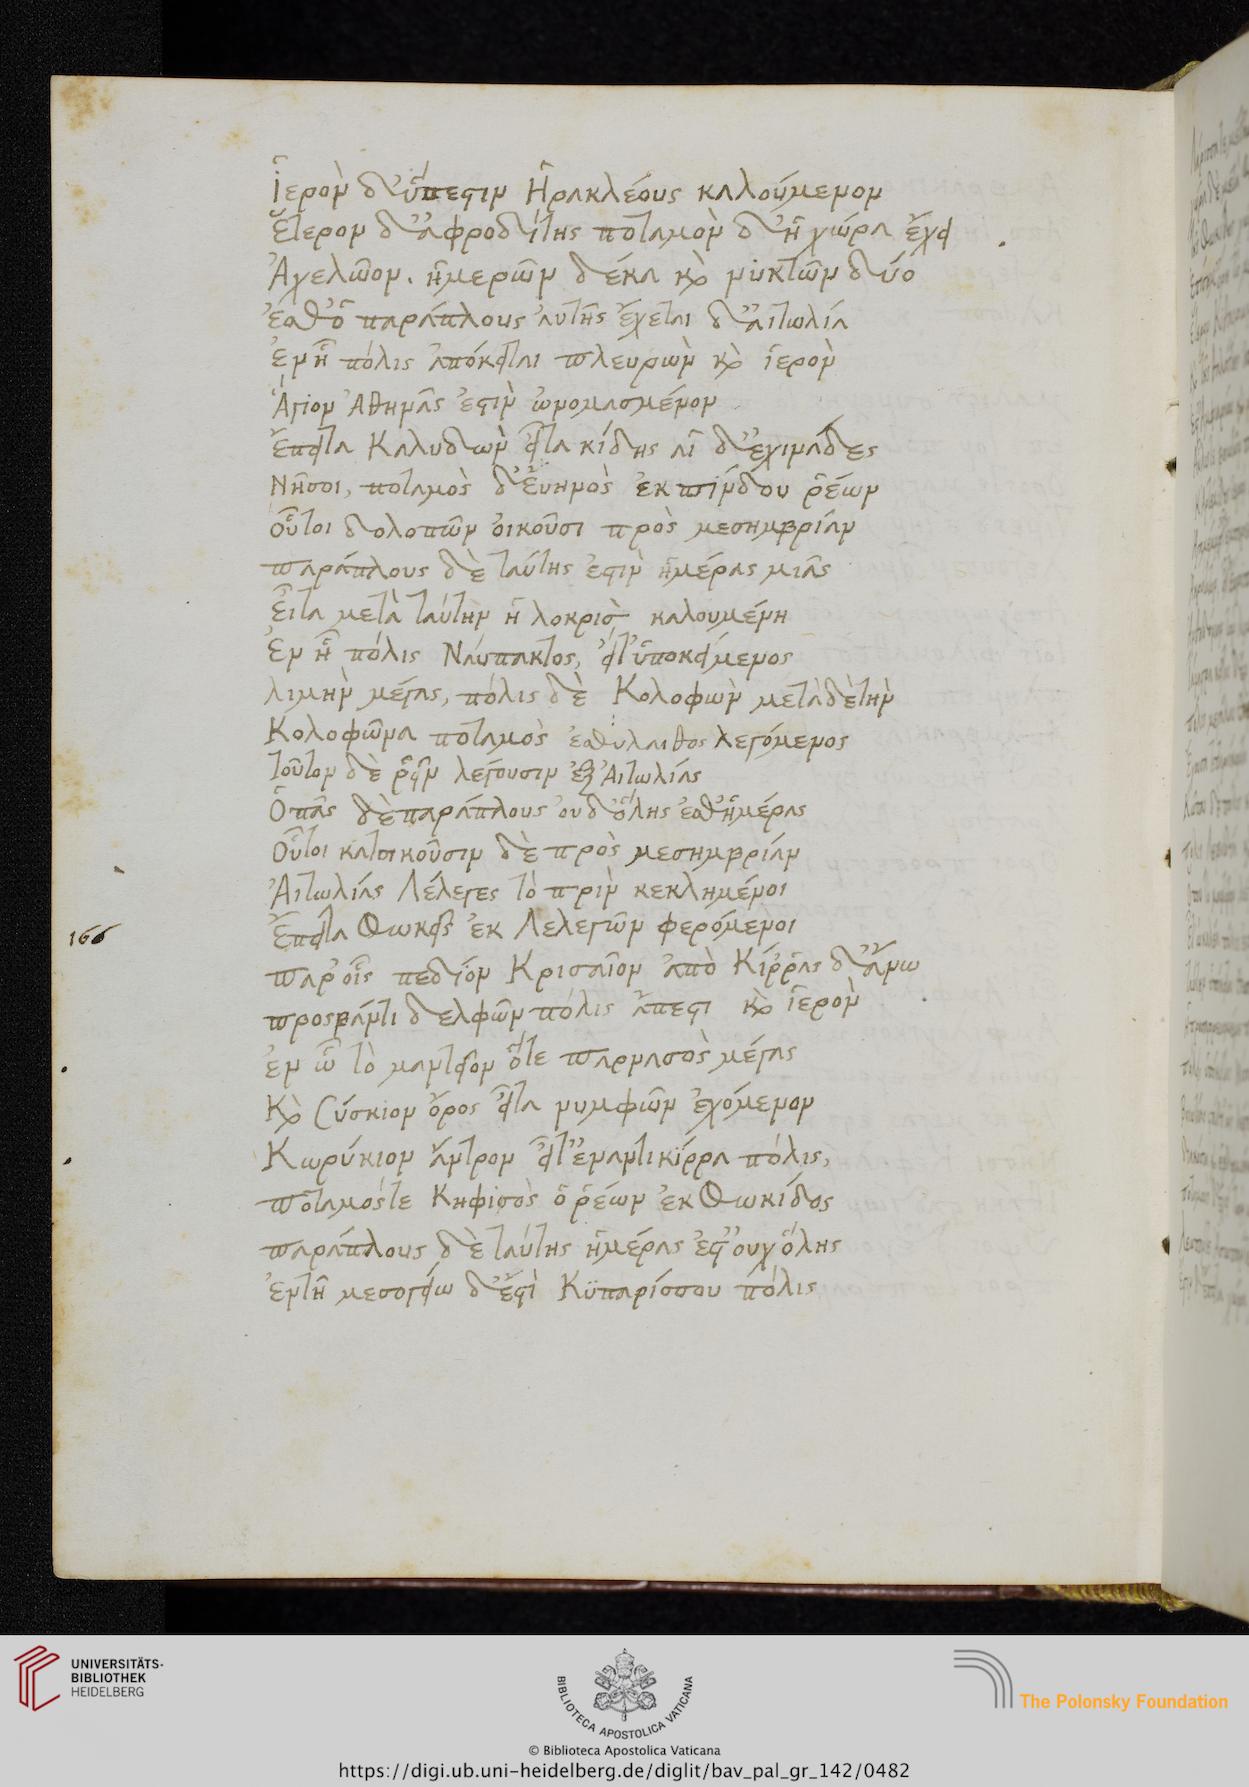 Ἱερὸν δ' ὕπεστιν Ἡρακλέους καλούμενον
Ἕτερον δ' ἀφροδίτης ποταμὸν δ' ἡ χώρα ἔχει
Ἀχελῶον. ἡμερῶν δέκα καὶ νυκτῶν δύο
παράπλους αὐτῆς ἔχεται δ' αἰτωλία
Ἐν ᾗ πόλις ἀπόκειται πλευρων καὶ ἱερὸν
Ἅγιον Ἀθηνᾶς ἐστὶν ὠνομασμένον
Ἔπειτα Καλυδων εἶτα κίδης αἱ δ' ἐχινάδες
Νῆσοι, ποταμὸς δ' Εὔηνος ἐκ πίνδου ῥέων
οὗτοι δολοπῶν οἰκοῦσι πρὸς μεσημβρίαν
παράπλους δὲ ταύτης ἐστὶν ἡμέρας μιᾶς
Εἶτα μετὰ ταύτην ἡ λοκρὶς καλουμένη
Ἐν ᾗ πόλις Ναύπακτος, εἶθ' ὑποκείμενος
λιμὴν μέγας, πόλις δὲ Κολοφὼν μετὰ δὲ τὴν
Κολοφῶνα ποταμὸς λεγόμενος
τοῦτον δὲ ῥεῖν λέγουσιν ἐξ Αἰτωλίας
Ὁ πᾶς δὲ παράπλους οὐδ' ὅλης ἐσθ' ἡμέρας
Οὗτοι κατοικοῦσιν δὲ πρὸς μεσημβρίαν
Αἰτωλίας Λέλεγες τὸ πρὶν κεκλημένοι
166 Ἔπειτα Φωκεῖς ἐκ Λελεγῶν φερόμενοι
παρ' οἷς πεδίον Κρισαῖον ἀπὸ Κίρρας δ' ἄνω
προσβάντι δελφῶν πόλις ἄπεστι καὶ ἱερὸν
ἐν ᾧ τὸ μαντεῖον ὅτε παρνασὸς μέγας
Καὶ σύσκιον ὄρος εἶτα νυμφῶν ἐχόμενον
Κωρύκιον ἄντρον εἶτ' ἐναντικίρρα πόλις,
ποταμόστε Κηφισὸς ὁ ῥέων ἐκ Φωκίδος
παράπλους δὲ ταύτης ἡμέρας ἐστ' οὐχ ὅλης
ἐν τῇ μεσογείω δ' ἐστὶ Κϋπαρίσσου πόλις
UNIVERSITÄTS-
BIBLIOTHEK
HEIDELBERG
BIBLIOTECA APOSTOLICA VATICANA
The Polonsky Foundation
© Biblioteca Apostolica Vaticana
https://digi.ub.uni-heidelberg.de/diglit/bav_pal_gr_142/0482